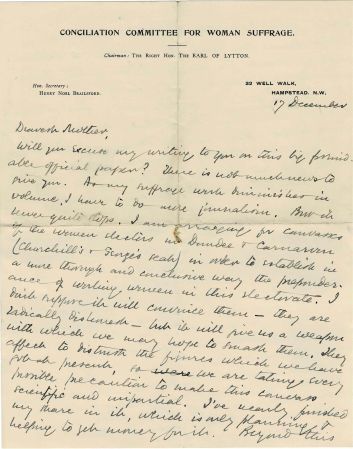 CONCILIATION COMMITTEE FOR WOMAN SUFFRAGE.
Chairman: THE RIGHT HON. THE EARL OF LYTTON.
Hon. Secretary:
HENRY NOEL BRAILSFORD.
32 WELL WALK,
HAMPSTEAD. N.W.
17 December
Dearest Mother,
Will you excuse my writing to you on this big formid-
able official paper? There is not much news to
give you. As my suffrage work diminishes in
volume, I have to do more journalism. But it
never quite stops. I am arranging for canvasses
of the women electors in Dundee & Carnarvon
(Churchill's & George's seats) in order to establish in
a more thorough and conclusive way the preponder-
ance of working women in this electorate. I
don't suppose it will convince them – they are
radically dishonest – but it will give us a weapon
with which we may hope to smash them. They
affect to distrust the figures which we have
at present, so we are taking every
possible precaution to make this canvass
scientific and impartial. I've nearly finished
my share in it, which is only planning &
helping to get money for it. Beyond this